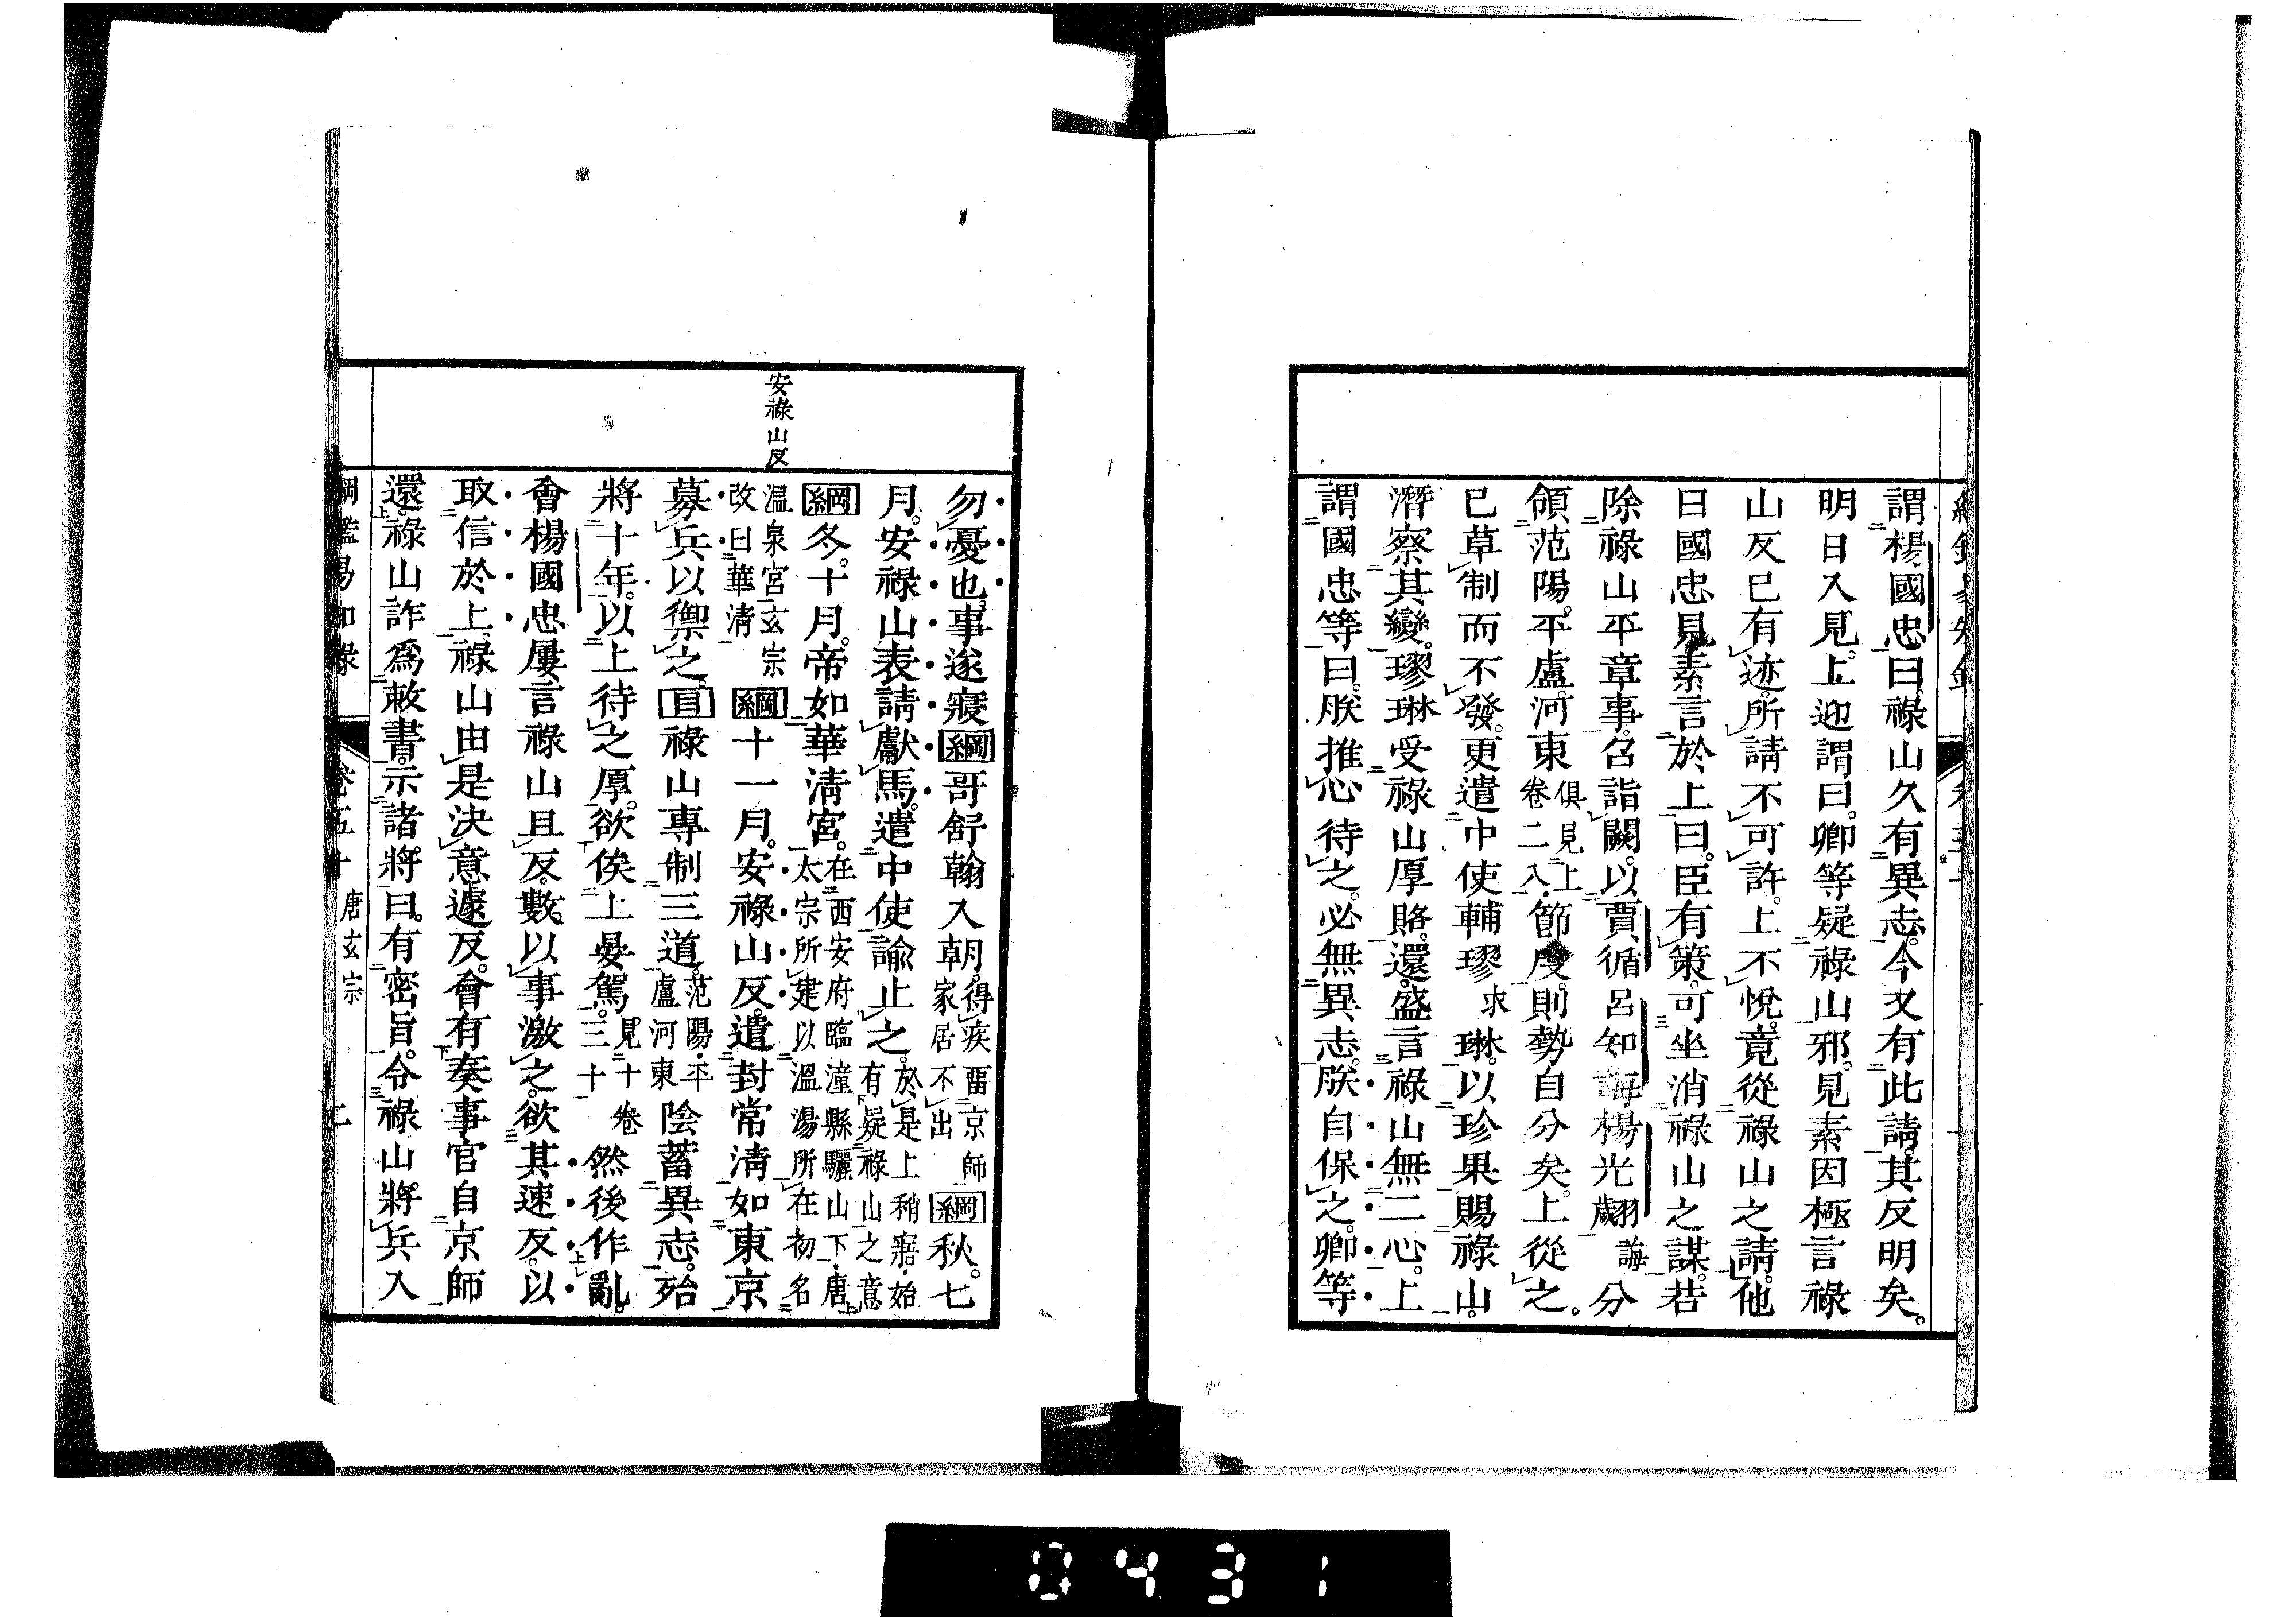 謂楊國忠曰。祿山久有異志。今又有此請。其反明矣。
明日入見。上迎謂曰。卿等疑祿山邪。見素因極言祿
山反已有迹。所請不可許。上不悅。竟從祿山之請。他
日國忠見素言於上曰。臣有策。可坐消祿山之謀。若
除祿山平章事。召詣闕。以賈循呂知誨楊光翽歲誨分
領范陽。平盧。河東俱見上卷二入節度。則勢自分矣。上從之。
已草制而不發。更遣中使輔璆求琳。以珍果賜祿山。
潛察其變。璆琳受祿山厚賂。還。盛言祿山無二心。上
謂國忠等曰。朕推心待之。必無異志。朕自保之。卿等
安祿山反
勿憂也。事遂寢綱哥舒翰入朝。得疾畱京師家居不出綱秋。七
月。安祿山表請獻馬。遣中使諭止之。於是上稍寤始有疑祿山之意
綱冬。十月。帝如華淸宮。在西安府臨潼縣驪山下唐太宗所建以溫湯所在初名
溫泉宮玄宗改曰華淸綱十一月。安祿山反。遣封常淸如東京
募兵以禦之。目祿山專制三道。范陽平盧河東陰蓄異志。殆
將十年。以上待之厚。欲俟上晏駕。見十卷三十然後作亂。
會楊國忠屢言祿山且反。數以事激之。欲其速反。以
取信於上。祿山由是決意遽反。會有奏事官自京師
還。祿山詐爲敕書。示諸將曰。有密旨。令祿山將兵入
綱鑑易知錄 卷五十 唐玄宗
0431